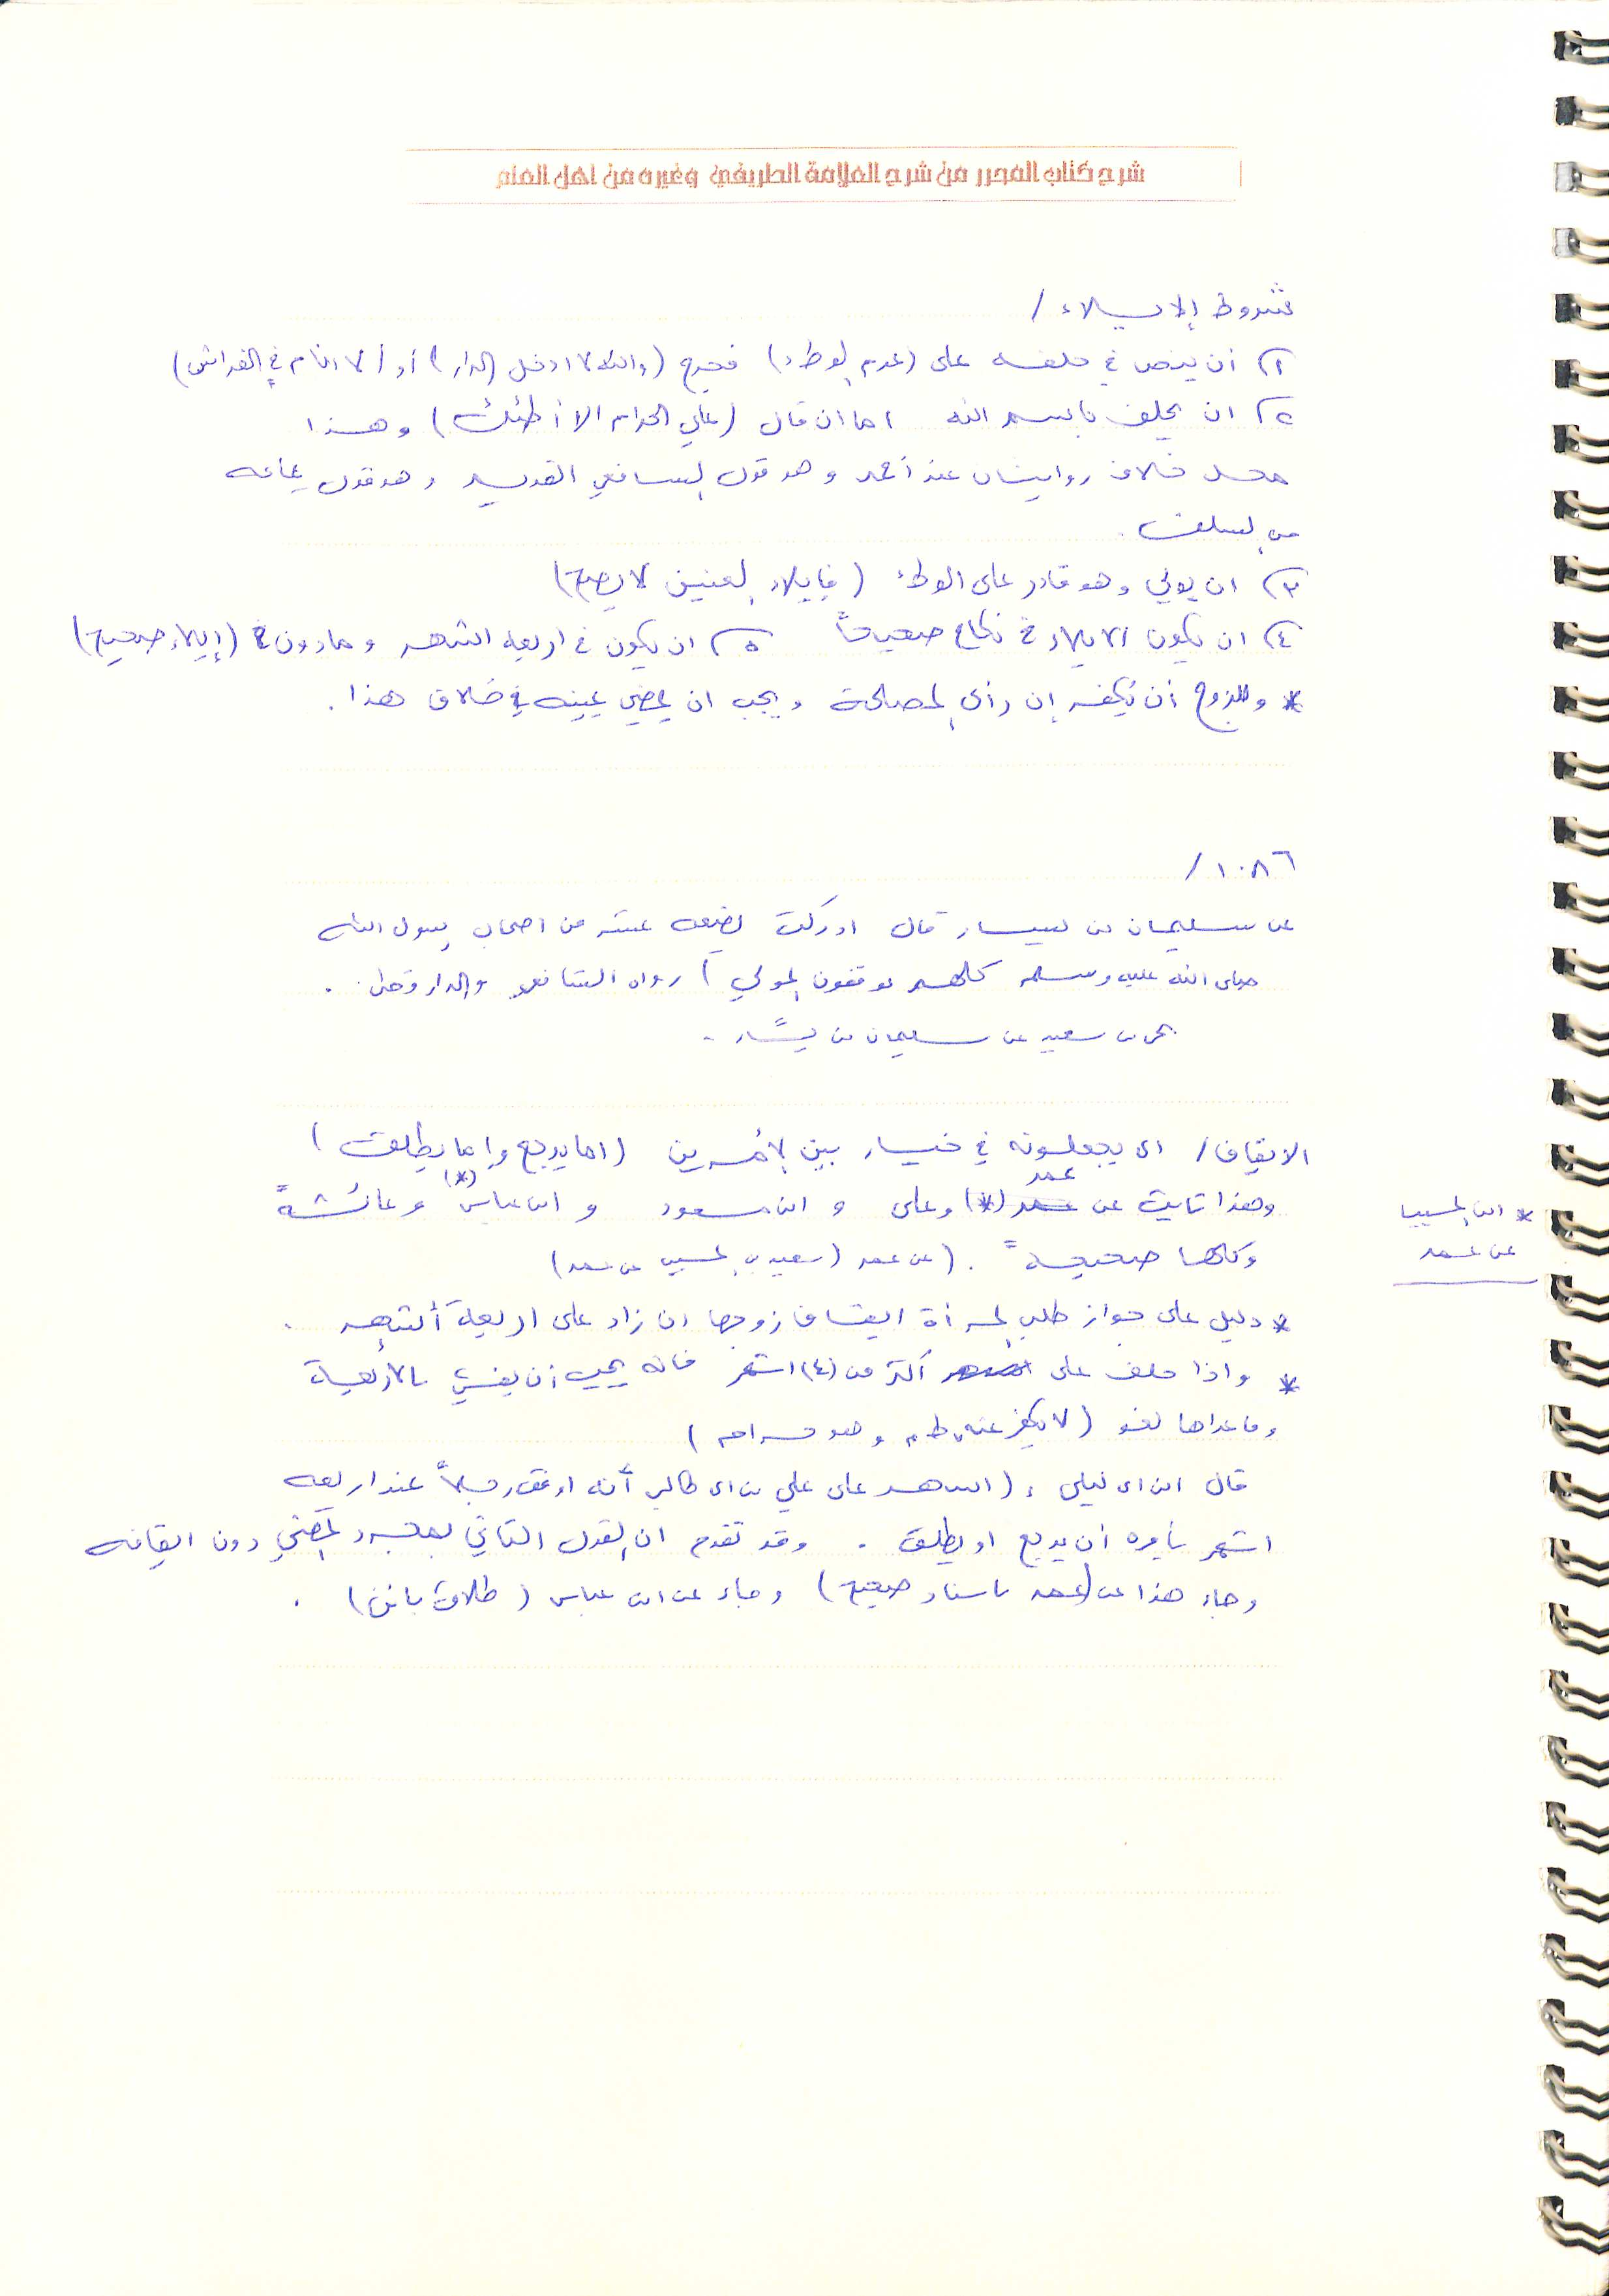 شرح كتاب المحرر من شرح العلامة الطريفي وغيره من اهل العلم
شروط الايلاء /
١) أن ينص في حلفه على (عدم الوطء) فخرج (والله لا ادخل الدار) أو (لا انام في الفراش)
٢) ان يحلف باسم الله اما ان قال (علي الحرام الا أطئك) وهذا
محل خلاف روايتان عند أحمد وهو قول الشافعي القديم وهو قول جماعه
من السلف .
٣) ان يولي وهو قادر على الوطء (فإيلاء العنين لا يصح)
٤) ان يكون الايلاء في نكاح صحيحاً ٥) ان يكون في اربعه اشهر وما دون في (إيلاء صحيح)
* وللزوج أن يكفر إن رأى المصلحة ويجب ان يمضي يمينه في خلاف هذا .
١٠٨٦ /
عن سليمان بن يسار قال ادركت بضعه عشر من اصحاب رسول الله
صلى الله عليه وسلم كلهم يوقفون المولي) رواه الشافعي والدارقطني .
يحيى بن سعيد عن سليمان بن يسار .
الايقاف / اي يجعلونه في خيار بين الأمرين (اما يرجع وإما يطلق)
وهذا ثابت عن عمر (*) وعلي و ابن مسعود و ابن عباس (*) وعائشة
* ابن المسيب
عن عمر
وكلها صحيحه . (عن عمر (سعيد بن المسيب عن عمر)
* دليل على جواز طلب المرأة ايقاف زوجها ان زاد على اربعة أشهر .
* واذا حلف على أكثر من (٤) اشهر فانه يجب أن يفيء بالأربعة
وما عداها لغو (لا يكفر عنه وهو حرام)
قال ابن ابي ليلى : (اشهد على علي بن ابي طالب أنه اوقف رجلاً عند اربعه
اشهر يأمره أن يرجع او يطلق . وقد تقدم ان القول الثاني بمجرد المضي دون ايقافه
وجاء هذا عن (عمر باسناد صحيح) وجاء عن ابن عباس (طلاق بائن) .